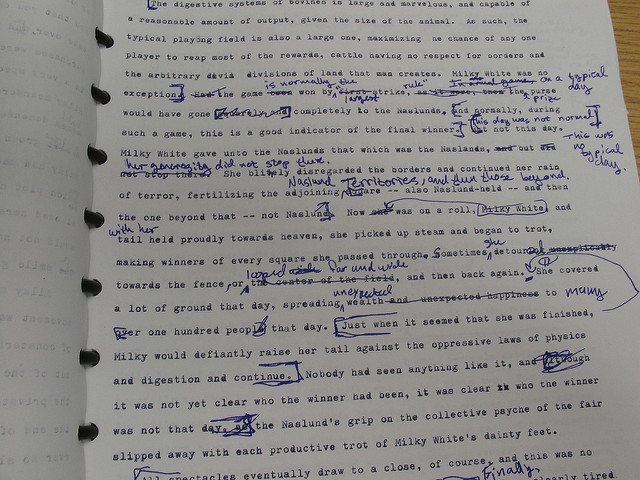 The digestive systems of bovines is large and marvelous, and capable of
a reasonable amount of output, given the size of the animal. As such, the
typical playing field is also a large one, maximizing he chance of any one
player to reap most of the rewards, cattle having no respect for borders and
the arbitrary divis divisions of land that man creates. Milky White was no
is normally the rule In most games on a typical day
exception. Had the game been won by first-strike, as it were, then the purse
largest prize
would have gone squarely and completely to the Naslunds. And normally, during
such a game, this is a good indicator of the final winner, but not this day.
this day was not normal
This was no typical day.
Milky White gave unto the Naslunds that which was the Naslands, and but
her generosity did not stop there.
not stop there. She blithely disregarded the borders and continued her rain
Naslund Territories, and then those beyond.
of terror, fertilizing the adjoining square -- also Naslund-held -- and then
the one beyond that -- not Naslund. Now she was on a roll, Milky White, and
with her
tail held proudly towards heaven, she picked up steam and began to trot,
making winners of every square she passed through. Sometimes detoured unexplicably
she
looped far and wide
towards the fence, or the center of the field, and then back again. She covered
unexpected
a lot of ground that day, spreading wealth and unexpected happiness to many
over one hundred people that day. Just when it seemed that she was finished,
Milky would defiantly raise her tail against the oppressive laws of physics
and digestion and continue. Nobody had seen anything like it, and although
it was not yet clear who the winner had been, it was clear who the winner
was not that day, as the Naslund's grip on the collective psyche of the fair
slipped away with each productive trot of Milky White's dainty feet.
All spectacles eventually draw to a close, of course, and this was no
Finally,
clearly tired